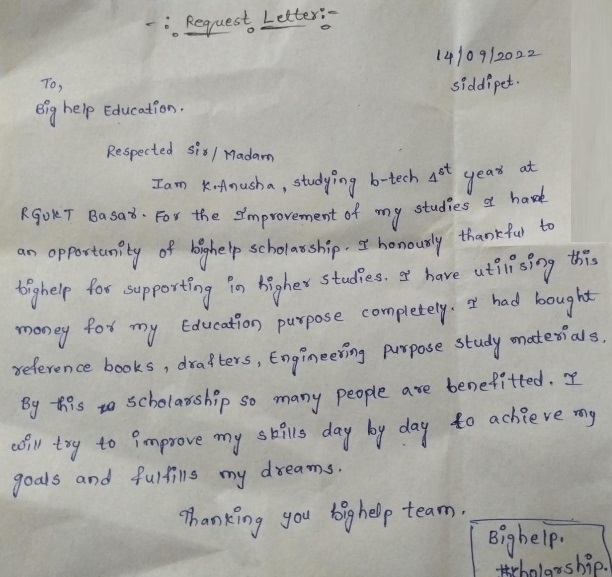 -: Request Letter:-
14/09/2022
Siddipet.
To,
Big help Education.
Respected Sir/Madam
I am K.Anusha, studying b-tech 1st year at
RGUKT Basar. For the Improvement of my studies I have
an opportunity of bighelp scholarship. I honourly thankful to
bighelp for supporting in higher studies. I have utilising this
money for my Education purpose completely. I had bought
reference books, drafters, Engineering purpose study materials.
By this scholarship so many people are benefitted. I
will try to improve my skills day by day to achieve my
goals and fulfills my dreams.
Thanking you bighelp team.
Bighelp.
#scholarship.